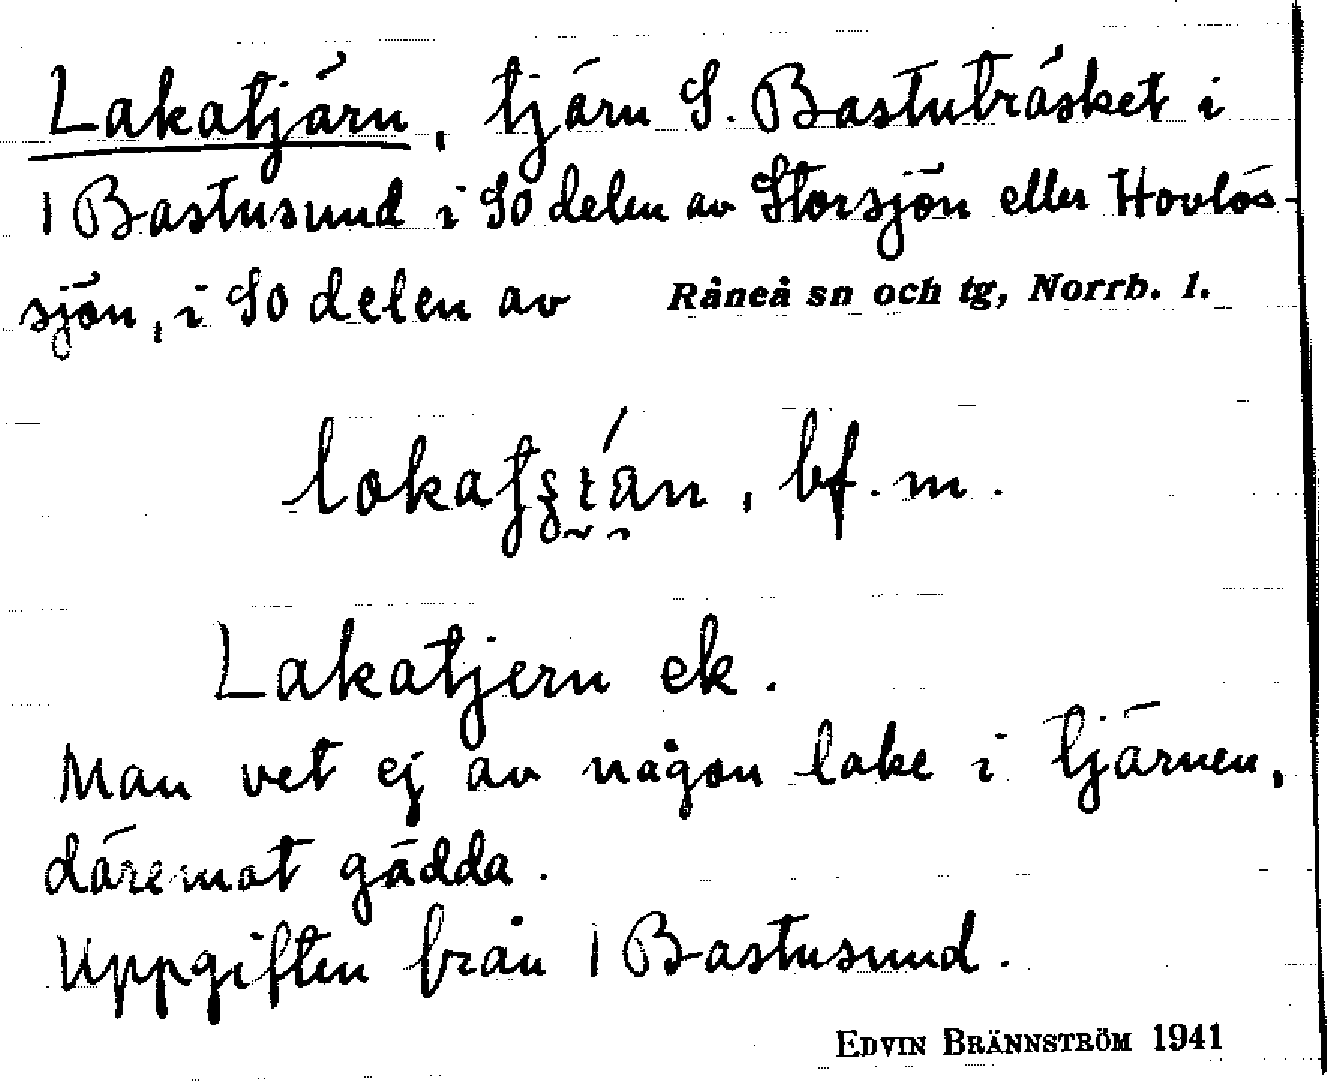 Lakatjärn, tjärn S. Bastuträsket i
1 Bastusund i SO delen av Storsjön eller Hovlös-
sjön, i SO delen av Råneå sn och tg, Norrb. l.
bf. m.
Lakatjern ek.
Man vet ej av någon lake i tjärnen,
däremot gädda.
Uppgiften från 1 Bastusund.
EDVIN BRÄNNSTRÖM 1941